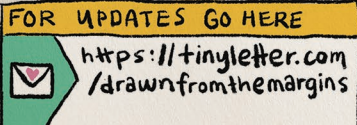 FOR UPDATES GO HERE
https://tinyletter.com
/drawnfromthemargins